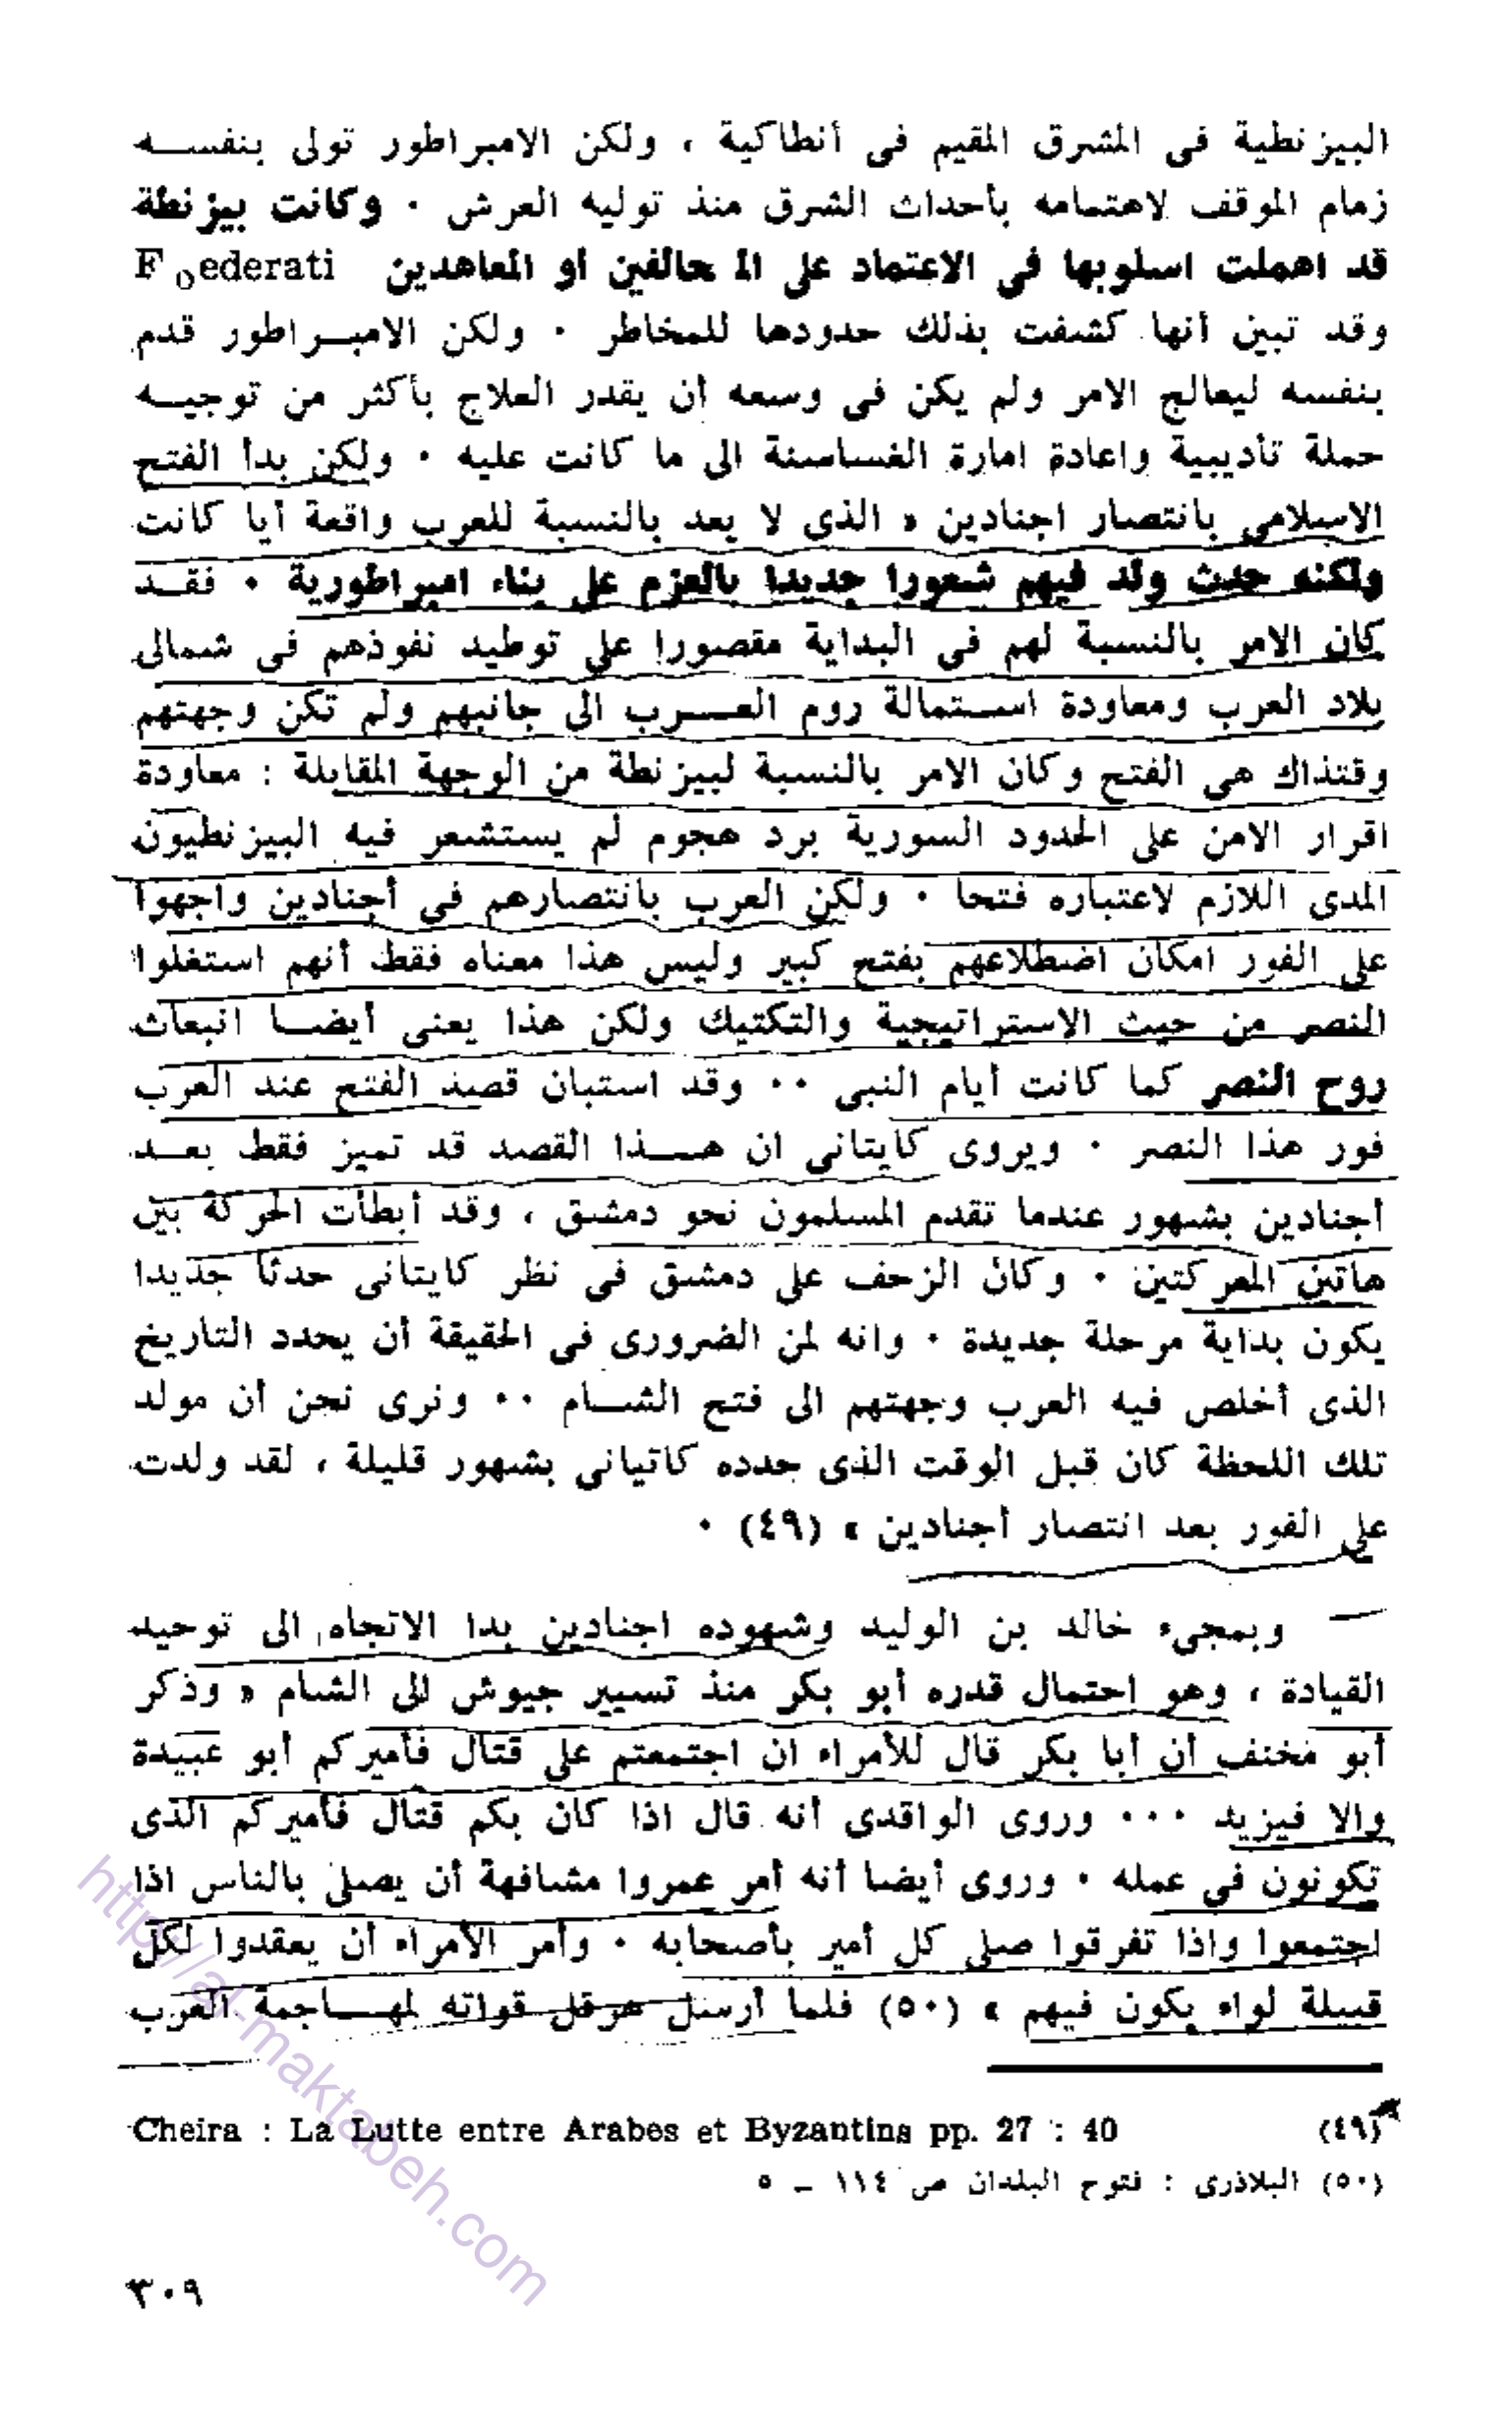 البيزنطية فى المشرق المقيم فى أنطاكية ، ولكن الامبراطور تولى بنفسه
زمام الموقف لاهتمامه بأحداث الشرق منذ توليه العرش . وكانت بيزنطة
قد اهملت اسلوبها فى الاعتماد على المحالفين أو المعاهدين Foederati
وقد تبين أنها كشفت بذلك حدودها للمخاطر . ولكن الامبراطور قدم
بنفسه ليعالج الامر ولم يكن فى وسعه أن يقدر العلاج بأكثر من توجيه
حملة تأديبية واعادة امارة الغساسنة الى ما كانت عليه . ولكن بدأ الفتح
الاسلامى بانتصار اجنادين « الذى لا يعد بالنسبة للعرب واقعة أيا كانت
ولكنه حدث ولد فيهم شعورا جديدا بالعزم على بناء امبراطورية . فقد
كان الامر بالنسبة لهم فى البداية مقصورا على توطيد نفوذهم فى شمالى
بلاد العرب ومعاودة استمالة روم العرب الى جانبهم ولم تكن وجهتهم
وقتذاك هى الفتح وكان الامر بالنسبة لبيزنطة من الوجهة المقابلة : معاودة
اقرار الامن على الحدود السورية برد هجوم لم يستشعر فيه البيزنطيون
المدى اللازم لاعتباره فتحا . ولكن العرب بانتصارهم فى أجنادين واجهوا
على الفور امكان اضطلاعهم بفتح كبير وليس هذا معناه فقط أنهم استغلوا
النصر من حيث الاستراتيجية والتكتيك ولكن هذا يعنى أيضا انبعاث
روح النصر كما كانت أيام النبى .. وقد استبان قصد الفتح عند العرب
فور هذا النصر . ويروى كايتانى ان هذا القصد قد تميز فقط بعد
أجنادين بشهور عندما تقدم المسلمون نحو دمشق ، وقد أبطأت الحركة بين
هاتين المعركتين . وكان الزحف على دمشق فى نظر كايتانى حدثا جديدا
يكون بداية مرحلة جديدة . وانه لمن الضرورى فى الحقيقة أن يحدد التاريخ
الذى أخلص فيه العرب وجهتهم الى فتح الشام .. ونرى نحن أن مولد
تلك اللحظة كان قبل الوقت الذى حدده كاتيانى بشهور قليلة ، لقد ولدت
على الفور بعد انتصار أجنادين » (٤٩) .
— وبمجىء خالد بن الوليد وشهوده اجنادين بدا الاتجاه الى توحيد
القيادة ، وهو احتمال قدره أبو بكر منذ تسيير جيوش الى الشام « وذكر
أبو مخنف أن أبا بكر قال للأمراء ان اجتمعتم على قتال فأميركم أبو عبيدة
والا فيزيد ... وروى الواقدى أنه قال اذا كان بكم قتال فأميركم الذى
تكونون فى عمله . وروى أيضا أنه أمر عمروا مشافهة أن يصلى بالناس اذا
اجتمعوا واذا تفرقوا صلى كل أمير بأصحابه . وأمر الأمراء أن يعقدوا لكل
قبيلة لواء يكون فيهم » (٥٠) فلما أرسل هرقل قواته لمهاجمة العرب
(٤٩) Cheira : La Lutte entre Arabes et Byzantins pp. 27 : 40
(٥٠) البلاذرى : فتوح البلدان ص ١١٤ ـ ٥
٣٠٩
http://al-maktabeh.com